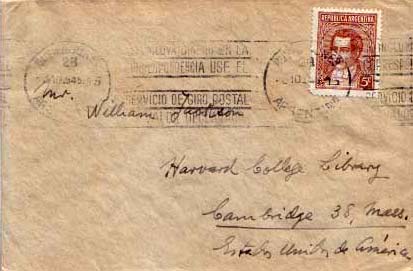 REPUBLICA ARGENTINA
5c
EN LA
CORRESPONDENCIA USE EL
SERVICIO DE GIRO POSTAL
28
Mr.
William Jackson
Harvard College Library
Cambridge 38, Mass.
Estados Unidos de América